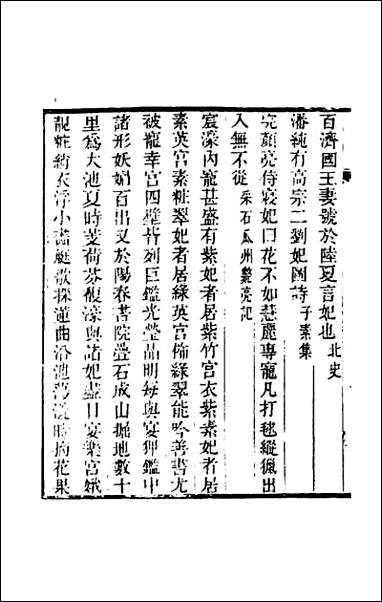 百濟國王妻號於陸夏言妃也 北史
潘純有高宗二劉妃圖詩 子素集
完顏亮侍寢妃曰花不如慧麗專寵凡打毬縱獵出
入無不從 采石瓜州斃亮記
宸濠內寵甚盛有紫妃者居紫竹宮衣紫素妃者居
素英宮素粧翠妃者居綠英宮佩綠翠能吟善書尤
被寵幸宮四壁皆列巨鑑光瑩晶明每與宴狎鑑中
諸形妖媚百出又於陽春書院疊石成山掘地數十
里爲大池夏時芰荷芬馥濠與諸妃盡日宴樂宮娥
靚粧衣浮小畵艇採蓮曲沿池蕩漾時摘花果